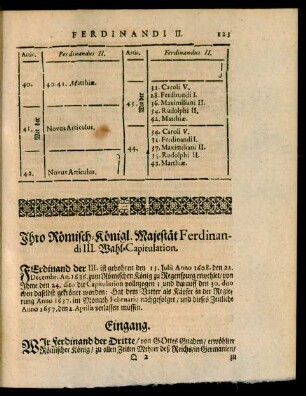 FERDINANDI II. 123
Artic. Ferdinandus II. Artic. Ferdinandus II.
40. 40. 41. Matthiæ.
41. Wie der Novus Articulus.
42. Novus Articulus.
43. Wie der
32. Caroli V.
28. Ferdinandi I.
36. Maximiliani II.
34. Rudolphi II.
42. Matthiæ.
44.
34. Caroli V.
31. Ferdinandi I.
37. Maximiliani II.
35. Rudolphi II.
43. Matthiæ.
Ihro Römisch-Königl. Majestät Ferdinan-
di III. Wahl-Capitulation.
FErdinand der III. ist gebohren den 13. Julii Anno 1608. den 22.
Decembr. An. 1636. zum Römischen König zu Regenspurg erwehlet / von
Ihme den 24. dito die Capitulation vollzogen / und darauf den 30. dito
eben daselbst gekrönet worden: Hat dem Vatter als Käyser in der Regie-
rung Anno 1637. im Monath Februario nachgefolget / und dieses Zeitliche
Anno 1657. den 2. Aprilis verlassen müssen.
Eingang.
WIr Ferdinand der Dritte / von GOttes Gnaden / erwöhlter
Römischer König / zu allen Zeiten Mehrer deß Reichs / in Germanien /
Q 2 zu